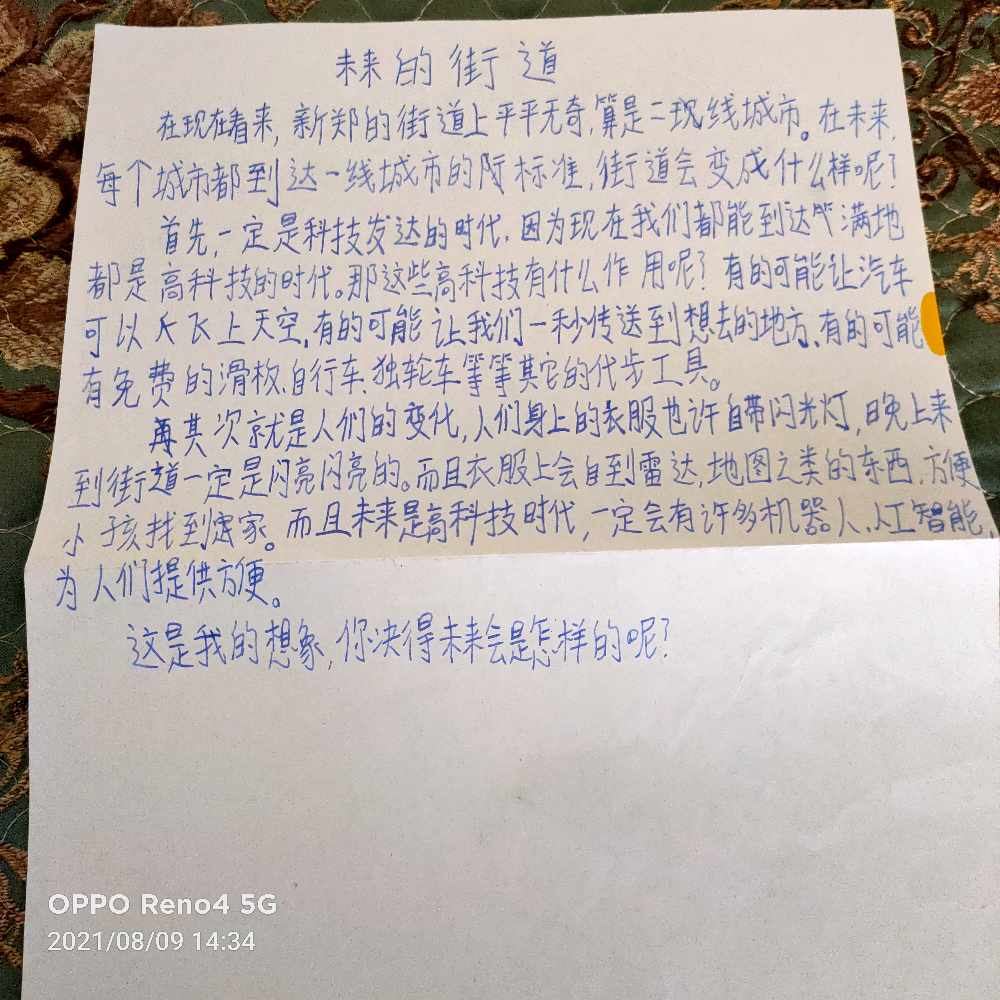 未来的街道
在现在看来,新郑的街道上平平无奇,算是二现线城市。在未来,
每个城市都到达一线城市的际标准,街道会变成什么样呢?
首先,一定是科技发达的时代,因为现在我们都能到达满地
都是高科技的时代。那这些高科技有什么作用呢?有的可能让汽车
可以飞上天空,有的可能让我们一秒传送到想去的地方,有的可能
有免费的滑板、自行车、独轮车等等其它的代步工具。
再其次就是人们的变化,人们身上的衣服也许自带闪光灯,晚上来
到街道一定是闪亮闪亮的。而且衣服上会自到雷达,地图之类的东西,方便
小孩找到家。而且未来是高科技时代,一定会有许多机器人、人工智能,
为人们提供方便。
这是我的想象,你决得未来会是怎样的呢?
OPPO Reno4 5G
2021/08/09 14:34